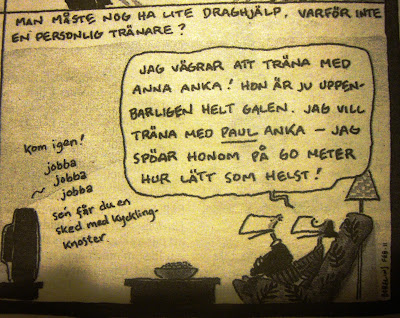 MAN MÅSTE NOG HA LITE DRAGHJÄLP, VARFÖR INTE
EN PERSONLIG TRÄNARE?
JAG VÄGRAR ATT TRÄNA MED
ANNA ANKA! HON ÄR JU UPPEN-
BARLIGEN HELT GALEN. JAG VILL
TRÄNA MED PAUL ANKA – JAG
SPÖAR HONOM PÅ 60 METER
HUR LÄTT SOM HELST!
kom igen!
jobba
jobba
jobba
sen får du en
sked med kyckling-
knoster